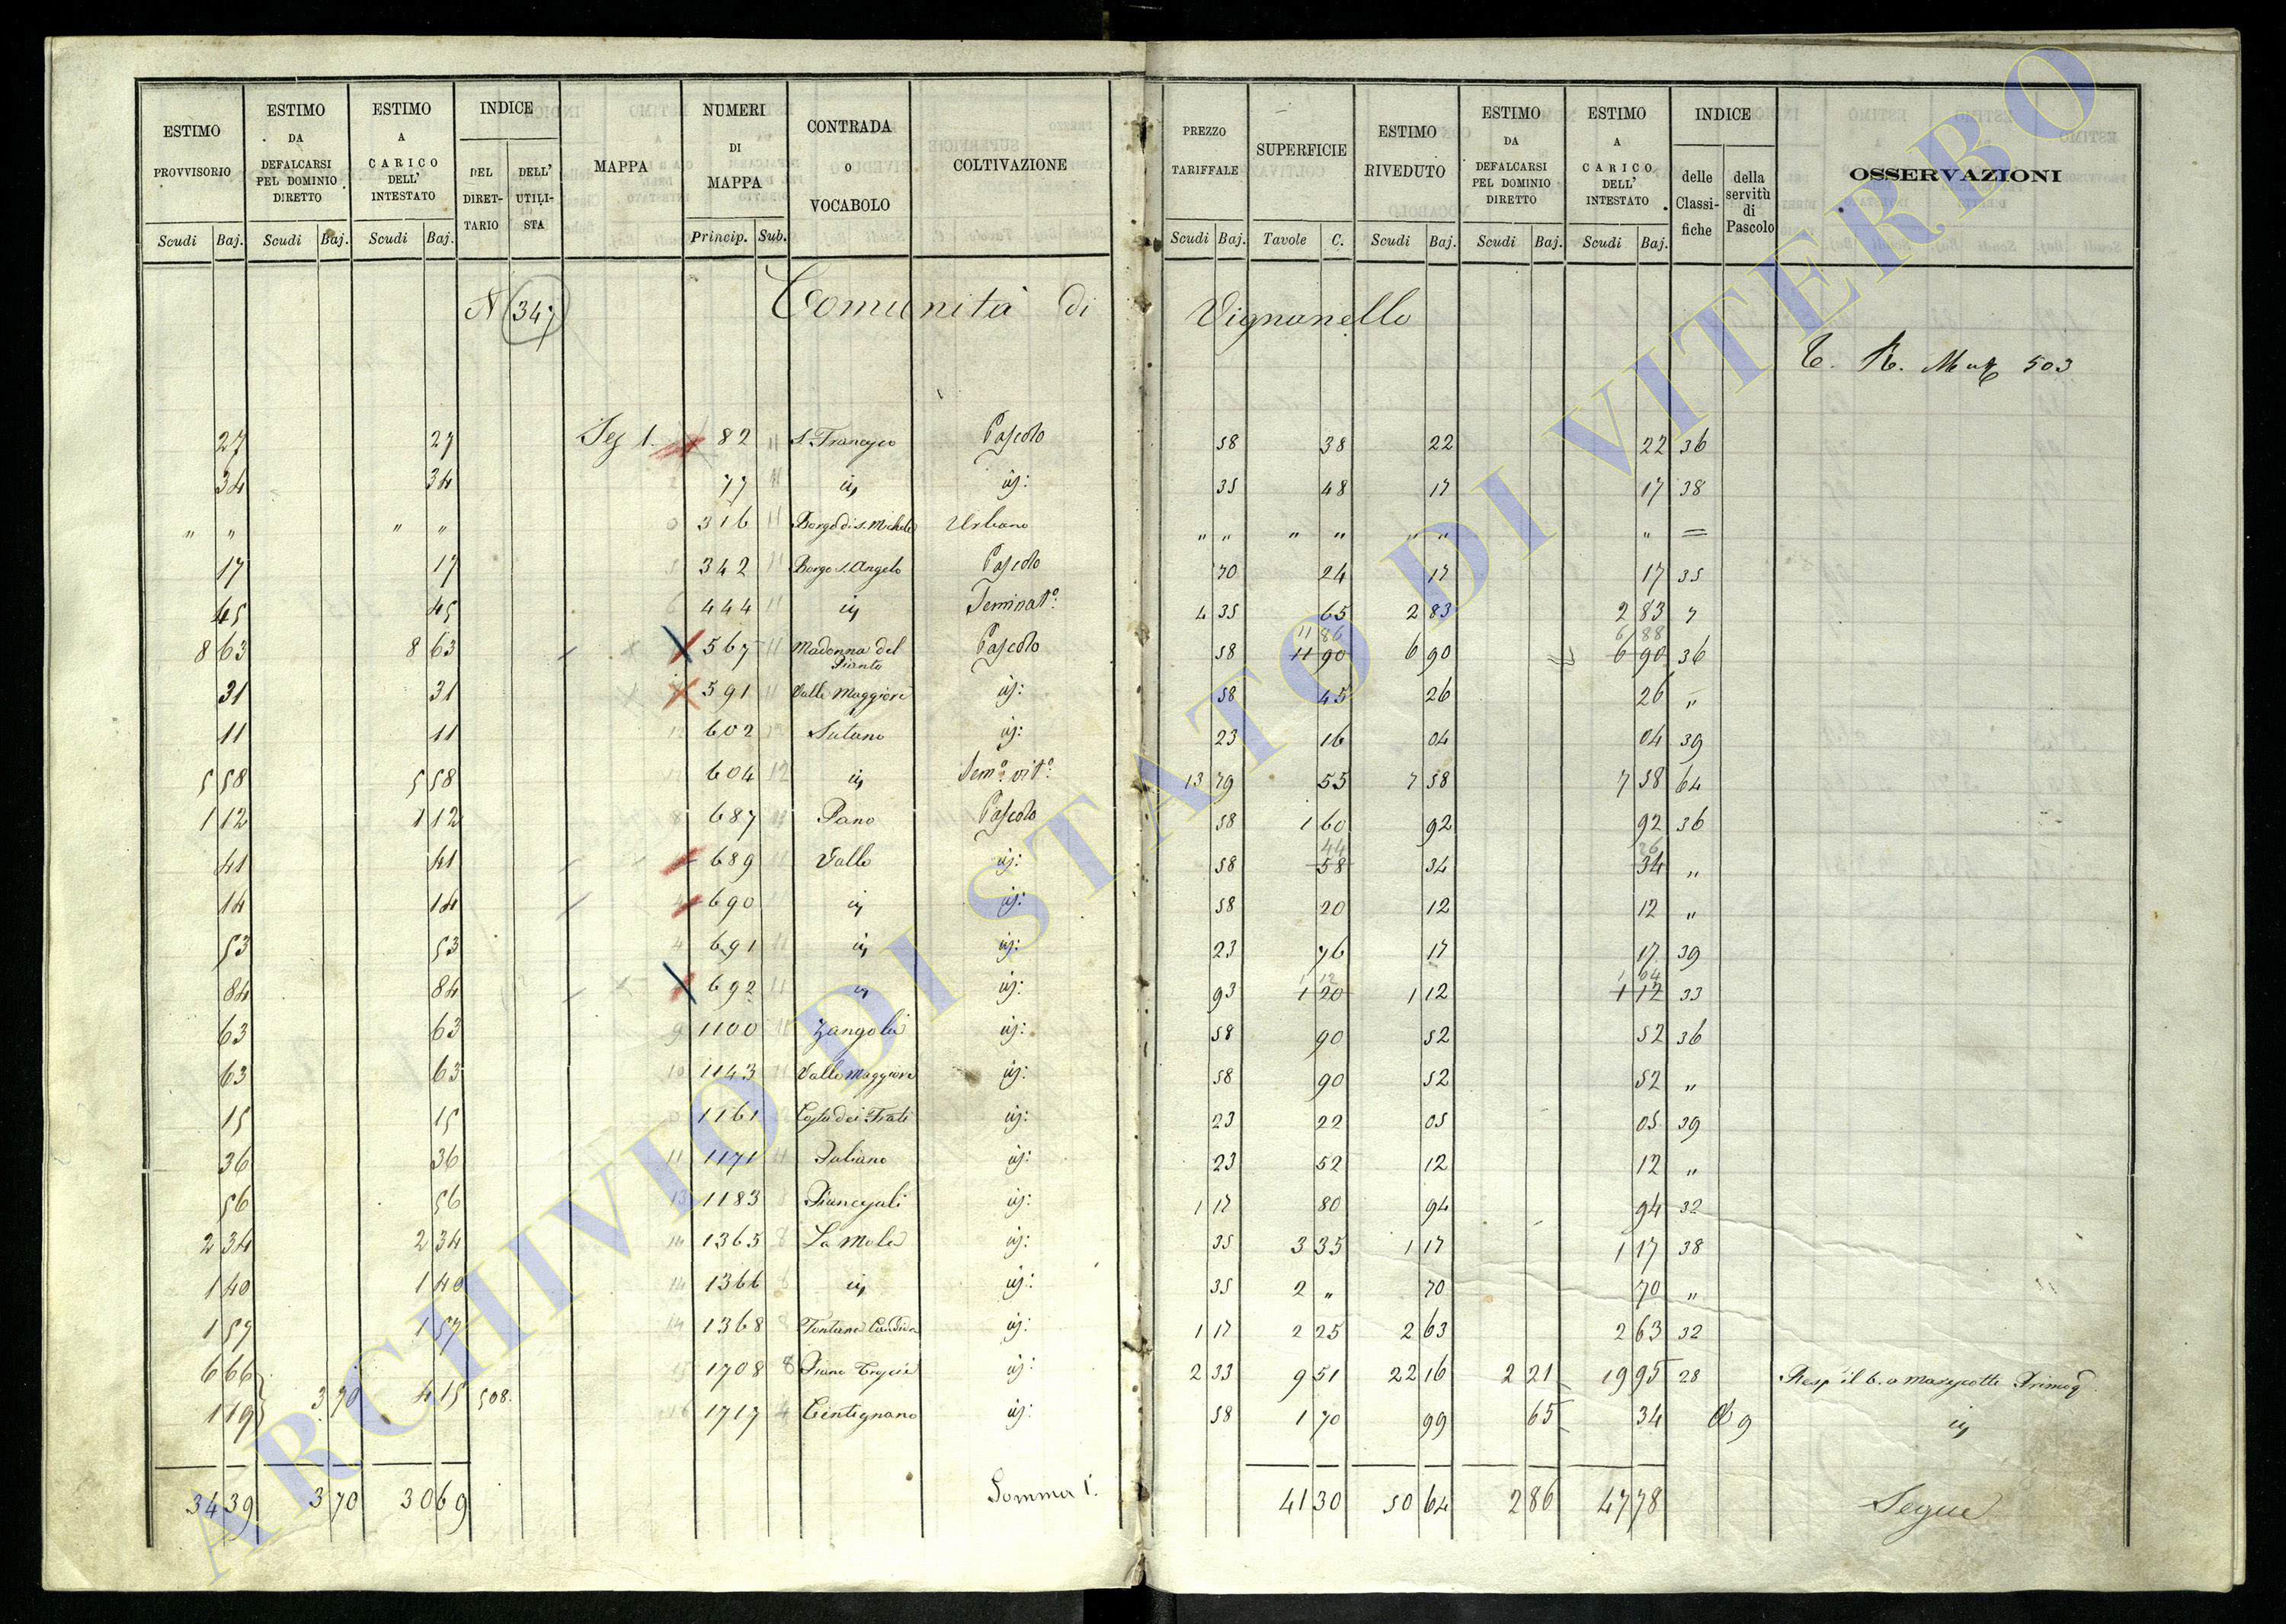 ESTIMO PROVVISORIO
ESTIMO DA DEFALCARSI PEL DOMINIO DIRETTO
ESTIMO A CARICO DELL' INTESTATO
INDICE
DEL DIRET-TARIO
DELL' UTILI-STA
MAPPA
NUMERI DI MAPPA
CONTRADA O VOCABOLO
COLTIVAZIONE
PREZZO TARIFFALE
SUPERFICIE
ESTIMO RIVEDUTO
ESTIMO DA DEFALCARSI PEL DOMINIO DIRETTO
ESTIMO A CARICO DELL' INTESTATO
INDICE
delle Classi-fiche
della servitù di Pascolo
OSSERVAZIONI
Scudi Baj. Scudi Baj. Scudi Baj. Princip. Sub. Scudi Baj. Tavole C. Scudi Baj. Scudi Baj. Scudi Baj.
N 347 Comunità di Vignanello
503
27 27 Sez 1. 82 11 S. Francesco Pascolo 58 38 22 22 36
34 34 77 11 35 48 17 17 38
" " " " 316 11 Borgo di S. Michele Urbano " " " " " " " =
17 17 342 11 Borgo S. Angelo Pascolo 70 24 17 17 35
45 45 444 11 Seminat° 4 35 65 2 83 2 83 7
11 86 6 88
8 63 8 63 567 11 Madonna del Pianto Pascolo 58 11 90 6 90 6 90 36
31 31 591 11 Valle Maggiore 58 45 26 26 "
11 11 602 12 Sutano 23 16 04 04 39
5 58 5 58 604 12 Sem° vit° 13 79 55 7 58 7 58 64
1 12 1 12 687 11 Pano Pascolo 58 1 60 92 92 36
44 26
41 41 689 11 Valle 58 58 34 34 "
14 14 690 58 20 12 12 "
53 53 691 11 23 76 17 17 39
1 12 1 04
84 84 692 11 93 1 20 1 12 1 12 33
63 63 1100 11 Zangola 58 90 52 52 36
63 63 1143 11 Valle Maggiore 58 90 52 52 "
15 15 1161 Costa dei Frati 23 22 05 05 39
36 36 1171 11 Juliano 23 52 12 12 "
56 56 1183 8 1 17 80 94 94 32
2 34 2 34 1365 8 La Mola 35 3 35 1 17 1 17 38
1 40 1 40 1366 8 35 2 " 70 70 "
1 57 1 57 1368 8 Fontana Candida 1 17 2 25 2 63 2 63 32
6 66 1708 8 2 33 9 51 22 16 2 21 19 95 28
3 70 4 15 508.
1 19 1717 4 Centignano 58 1 70 99 65 34 9
Somma 1.
34 39 3 70 30 69 41 30 50 64 2 86 47 78 Segue
ARCHIVIO DI STATO DI VITERBO